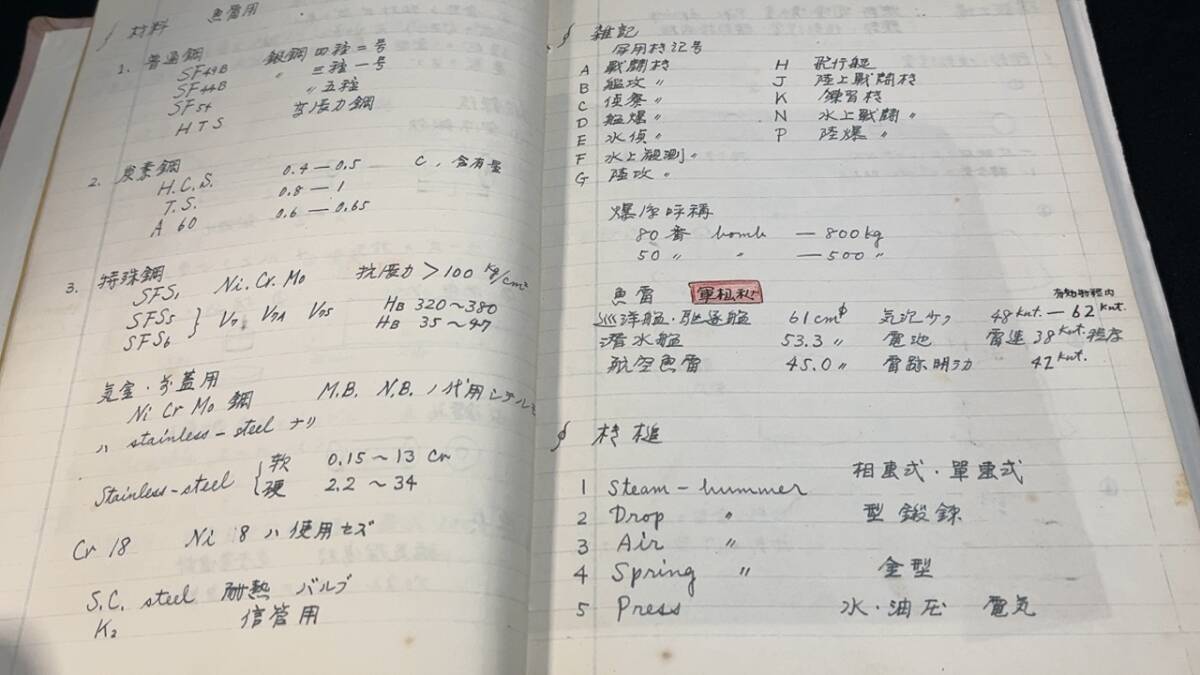 § 材料 魚雷用
1. 普通鋼
SF49B 鍛鋼四種二号
SF44B 〃 三種一号
SF54 〃 五種
HTS 高張力鋼
2. 炭素鋼
H.C.S. 0.4—0.5 C, 含有量
T.S. 0.8—1
A 60 0.6—0.65
3. 特殊鋼
SFS1 Ni. Cr. Mo 抗張力 > 100 kg/cm²
SFS5 } V7 V7A V75 HB 320〜380
SFS6 HB 35〜47
気室・蓋用
Ni Cr Mo 鋼 M.B. N.B. ノ代用
ハ stainless-steel ナリ
Stainless-steel { 軟 0.15〜13 Cr
硬 2.2〜34
Cr 18 Ni 8 ハ使用セズ
S.C. steel 耐熱 バルブ
K2 信管用
§ 雑記
用機記号
A 戦闘機
B 艦攻 〃
C 偵察 〃
D 艦爆 〃
E 水偵 〃
F 水上観測 〃
G 陸攻 〃
H 飛行艇
J 陸上戦闘機
K 練習機
N 水上戦闘 〃
P 陸爆 〃
爆弾呼称
80番 bomb —800kg
50 〃 〃 —500 〃
魚雷 軍極秘 有効射程内
巡洋艦・駆逐艦 61cmφ 48 knt. — 62 knt.
潜水艦 53.3 〃 電池 雷速 38 knt. 程度
航空魚雷 45.0 〃 42 knt.
§ 機槌
1 Steam-hummer 相重式・單重式
2 Drop 〃 型鍛錬
3 Air 〃
4 Spring 〃 金型
5 Press 水・油圧 電気